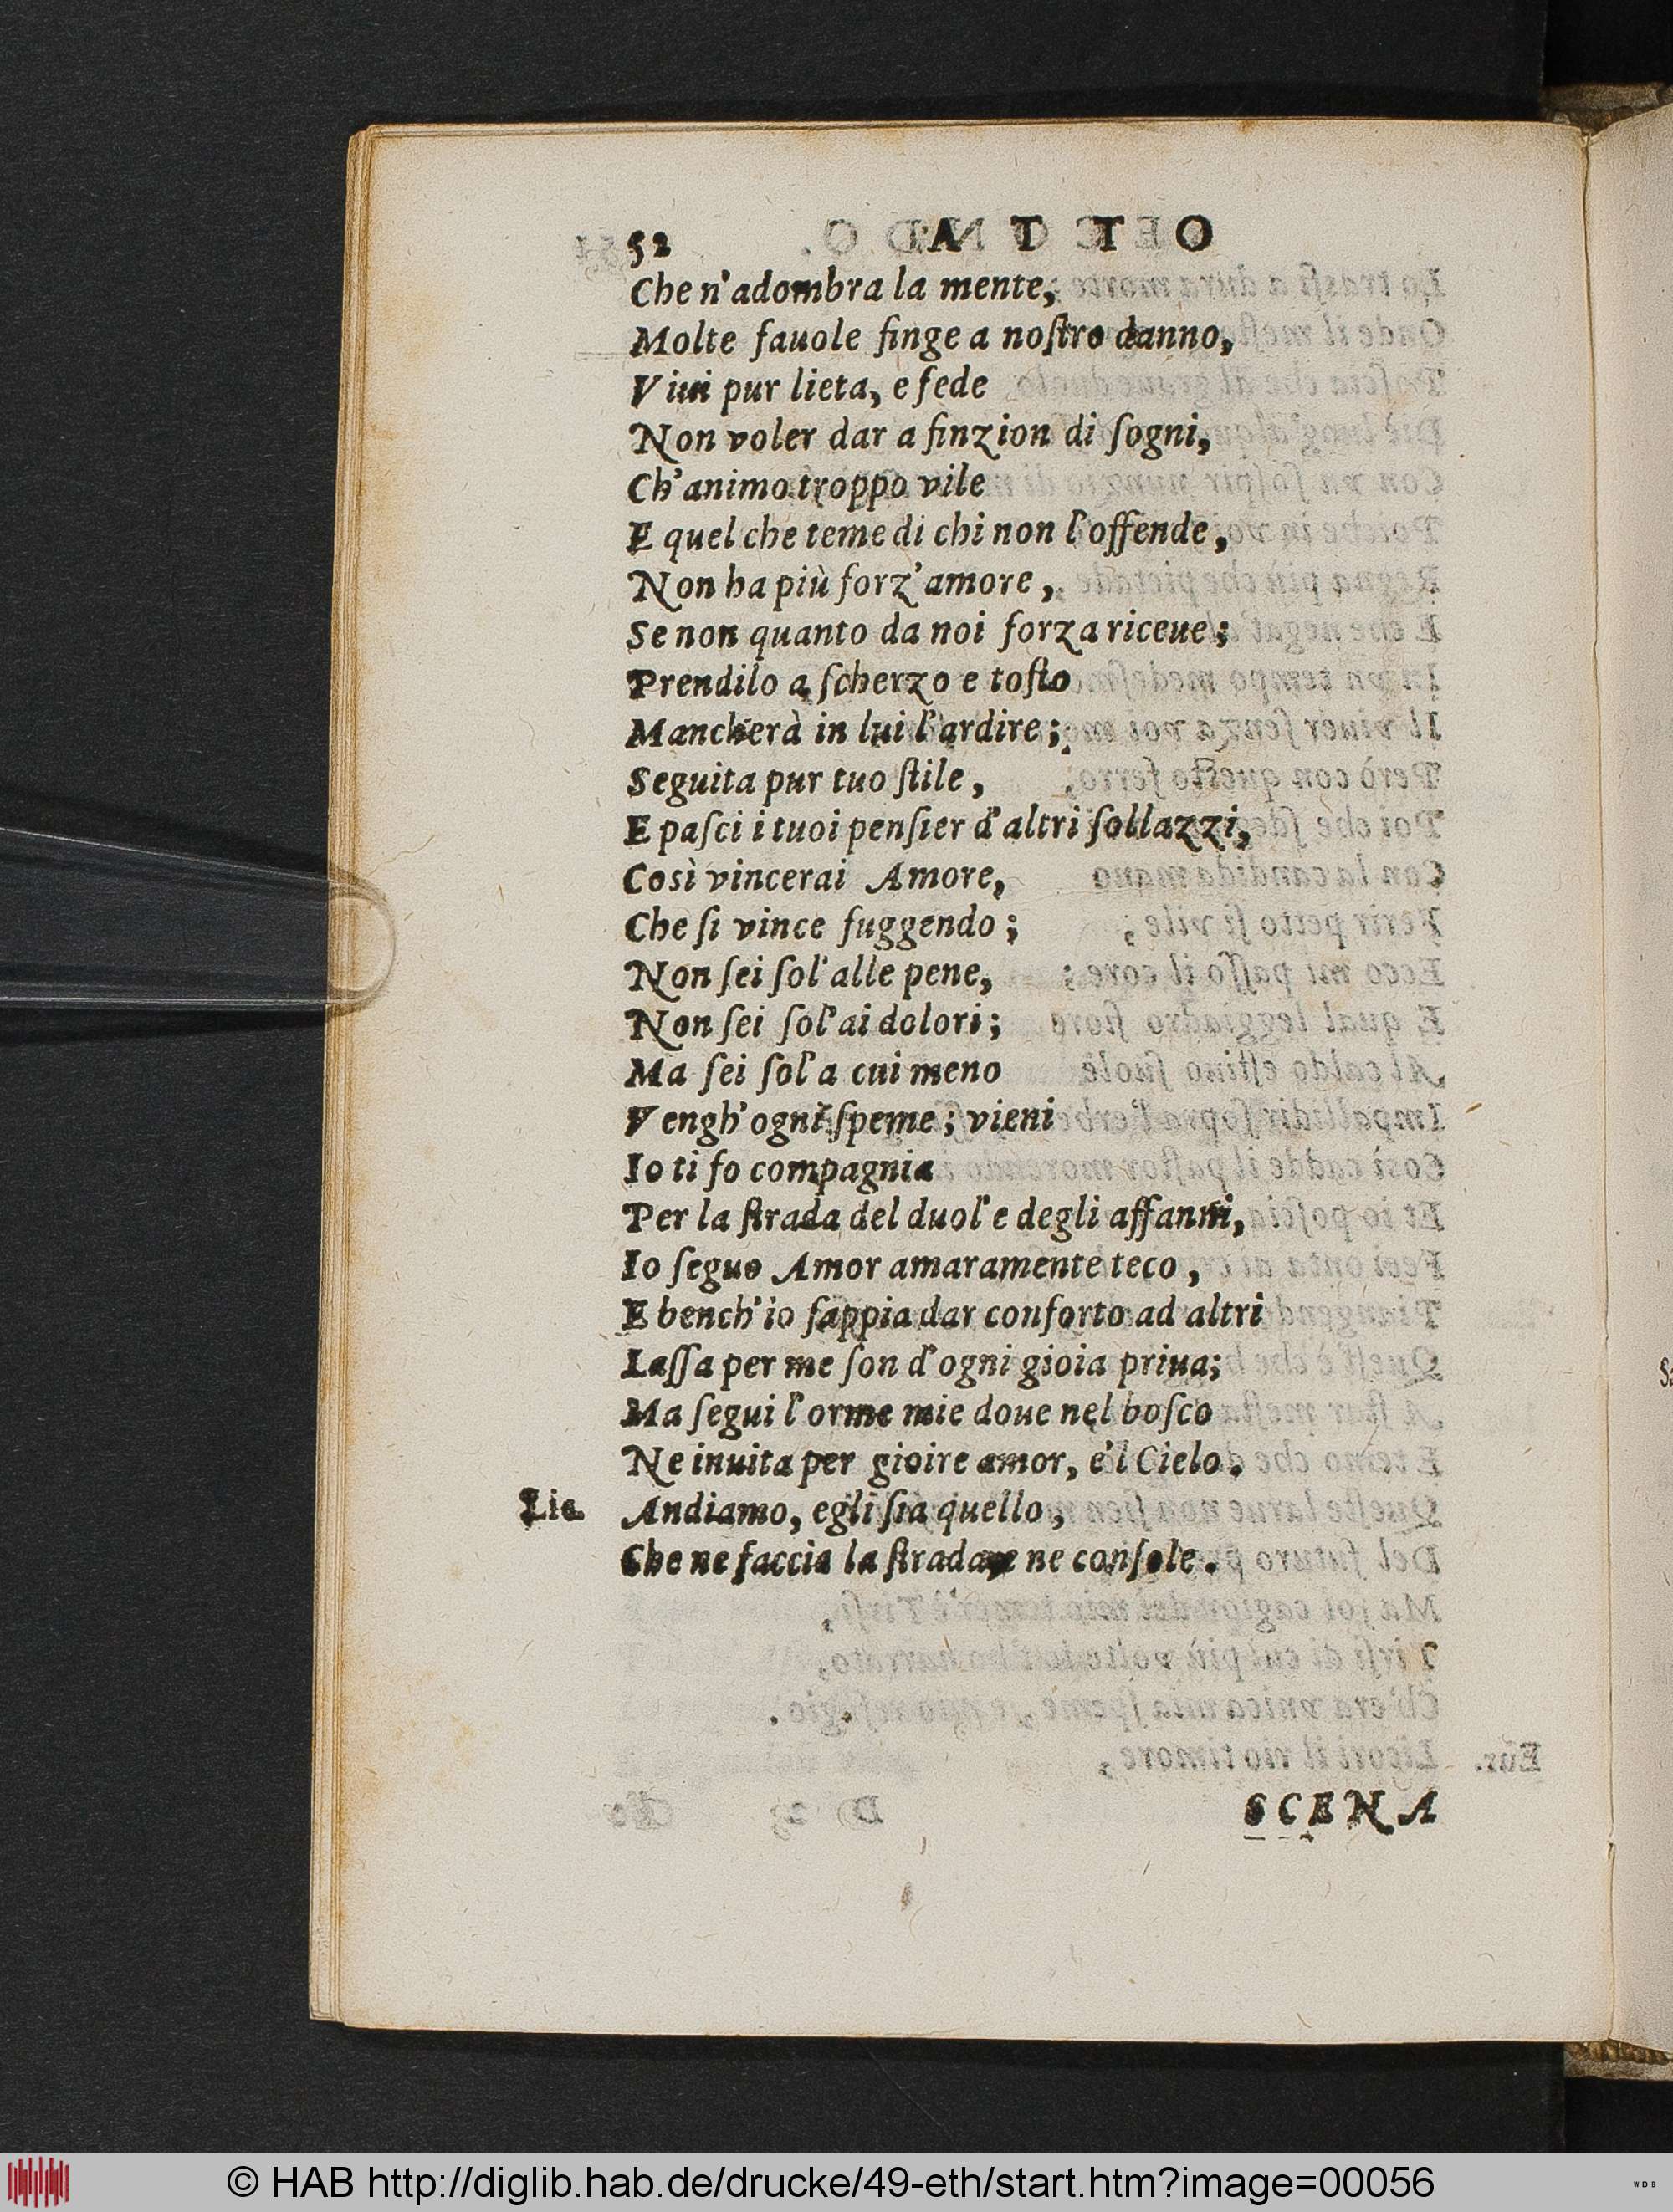 52 ATTO
Che n'adombra la mente,
Molte fauole finge a noſtro danno,
Viui pur lieta, e fede
Non voler dar a finzion di ſogni,
Ch'animo troppo vile
E quel che teme di chi non l'offende,
Non ha più forz'amore,
Se non quanto da noi forza riceue;
Prendilo a ſcherzo e toſto
Mancherà in lui l'ardire;
Seguita pur tuo ſtile,
E paſci i tuoi penſier d'altri ſollazzi,
Così vincerai Amore,
Che ſi vince fuggendo;
Non ſei ſol' alle pene,
Non ſei ſol' ai dolori;
Ma ſei ſol' a cui meno
Vengh'ogni ſpeme; vieni
Io ti fo compagnia
Per la ſtrada del duol' e degli affanni,
Io ſeguo Amor amaramente teco,
E bench'io ſappia dar conforto ad altri
Laſſa per me ſon d'ogni gioia priua;
Ma ſegui l'orme mie doue nel boſco
Ne inuita per gioire amor, e'l Cielo.
Lic. Andiamo, egli ſia quello,
Che ne faccia la ſtrada, e ne conſole.
SCENA
© HAB http://diglib.hab.de/drucke/49-eth/start.htm?image=00056
WDB